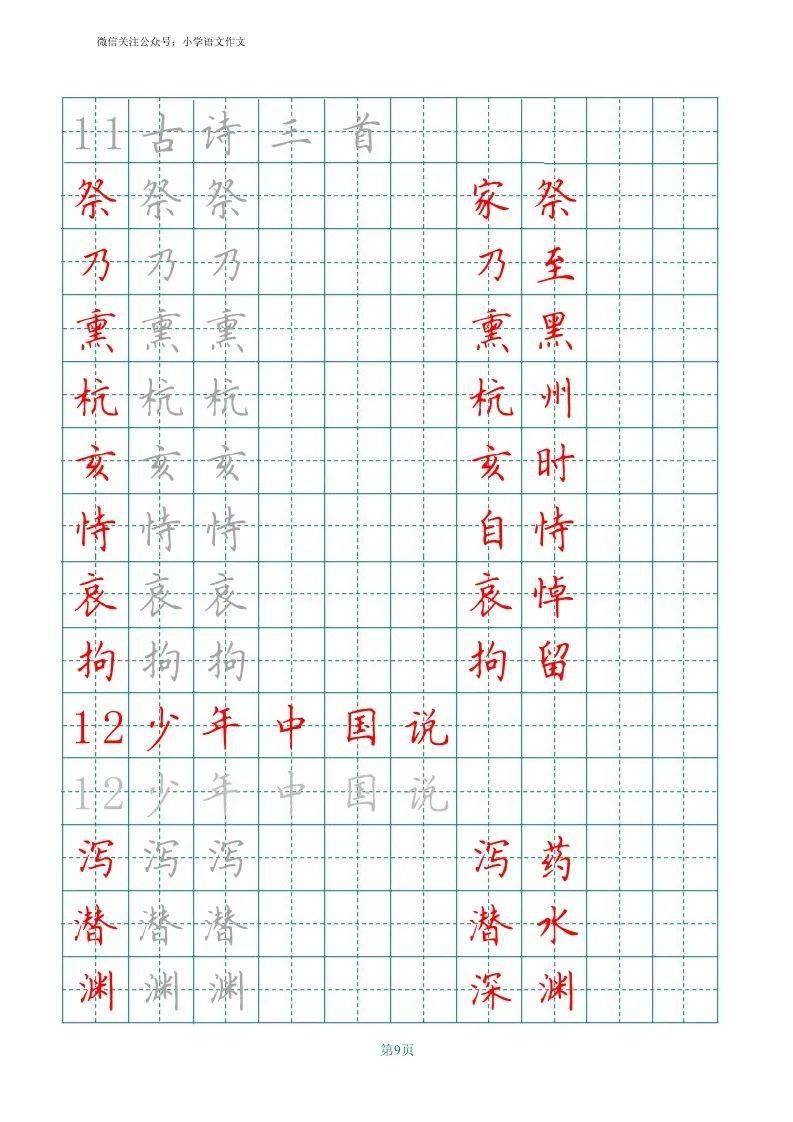 微信关注公众号：小学语文作文
11古诗三首
祭祭祭 家祭
乃乃乃 乃至
熏熏熏 熏黑
杭杭杭 杭州
亥亥亥 亥时
恃恃恃 自恃
哀哀哀 哀悼
拘拘拘 拘留
12少年中国说
12少年中国说
泻泻泻 泻药
潜潜潜 潜水
渊渊渊 深渊
第9页